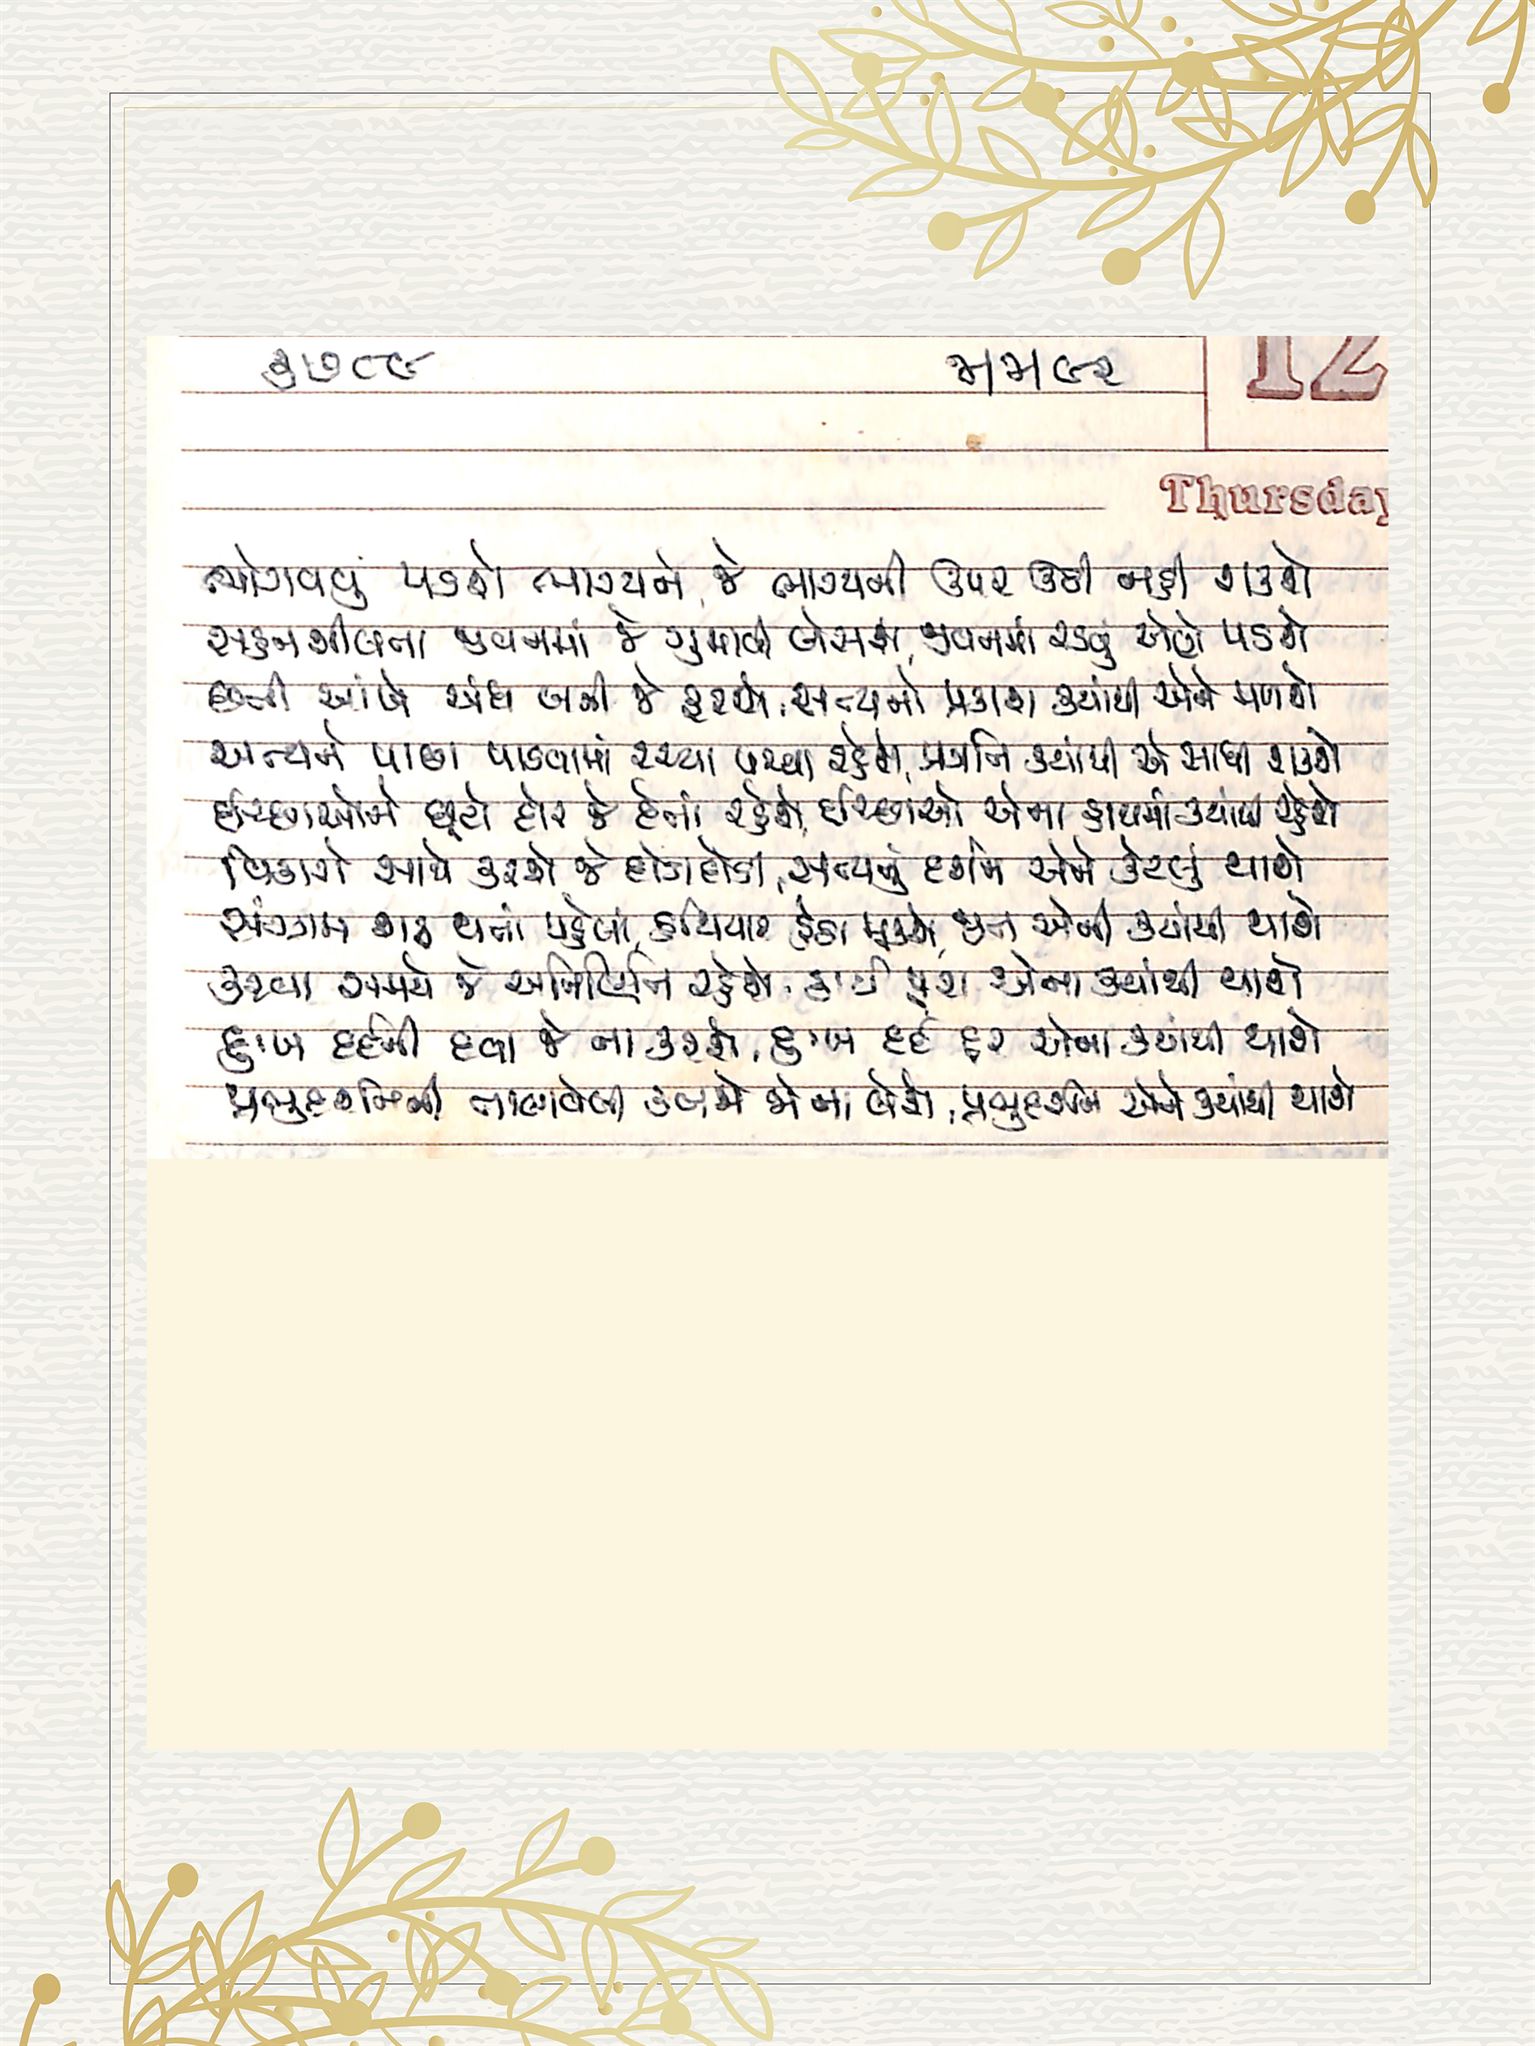 ૩૭૮૯
મમ૯૨
12
Thursday
ભોગવવું પડશે ભાગ્યને, જે ભાગ્યની ઉપર ઉઠી નહી શકશે
સહનશીલતા જીવનમાં જે ગુમાવી બેસશે, જીવનમાં રડવું એણે પડશે
છતી આંખે અંધ બની જે ફરશે, સત્યનો પ્રકાશ ક્યાંથી એને મળશે
અન્યને પાછા પાડવામાં રચ્યા પચ્યા રહેશે, પ્રગતિ ક્યાંથી એ સાધી શકશે
ઈચ્છાઓને છૂટો દોર જે દેતાં રહેશે, ઈચ્છાઓ એના કાબૂમાં ક્યાંથી રહેશે
વિકારો સાથે કરશે જે દોડાદોડી, સત્યનું દર્શન એને કેટલું થાશે
સંગ્રામ શરૂ થતાં પહેલાં, હથિયાર હેઠા મૂકશે, જીત એની ક્યાંથી થાશે
કરવા સમયે જે અનિર્ણિત રહેશે, કાર્ય પૂરા એના ક્યાંથી થાશે
દુઃખ દર્દની દવા જે ના કરશે, દુઃખ દર્દ દૂર એના ક્યાંથી થાશે
પ્રભુદર્શનની તાલાવેલી હૈયે જો ના લેશે, પ્રભુદર્શન એને ક્યાંથી થાશે